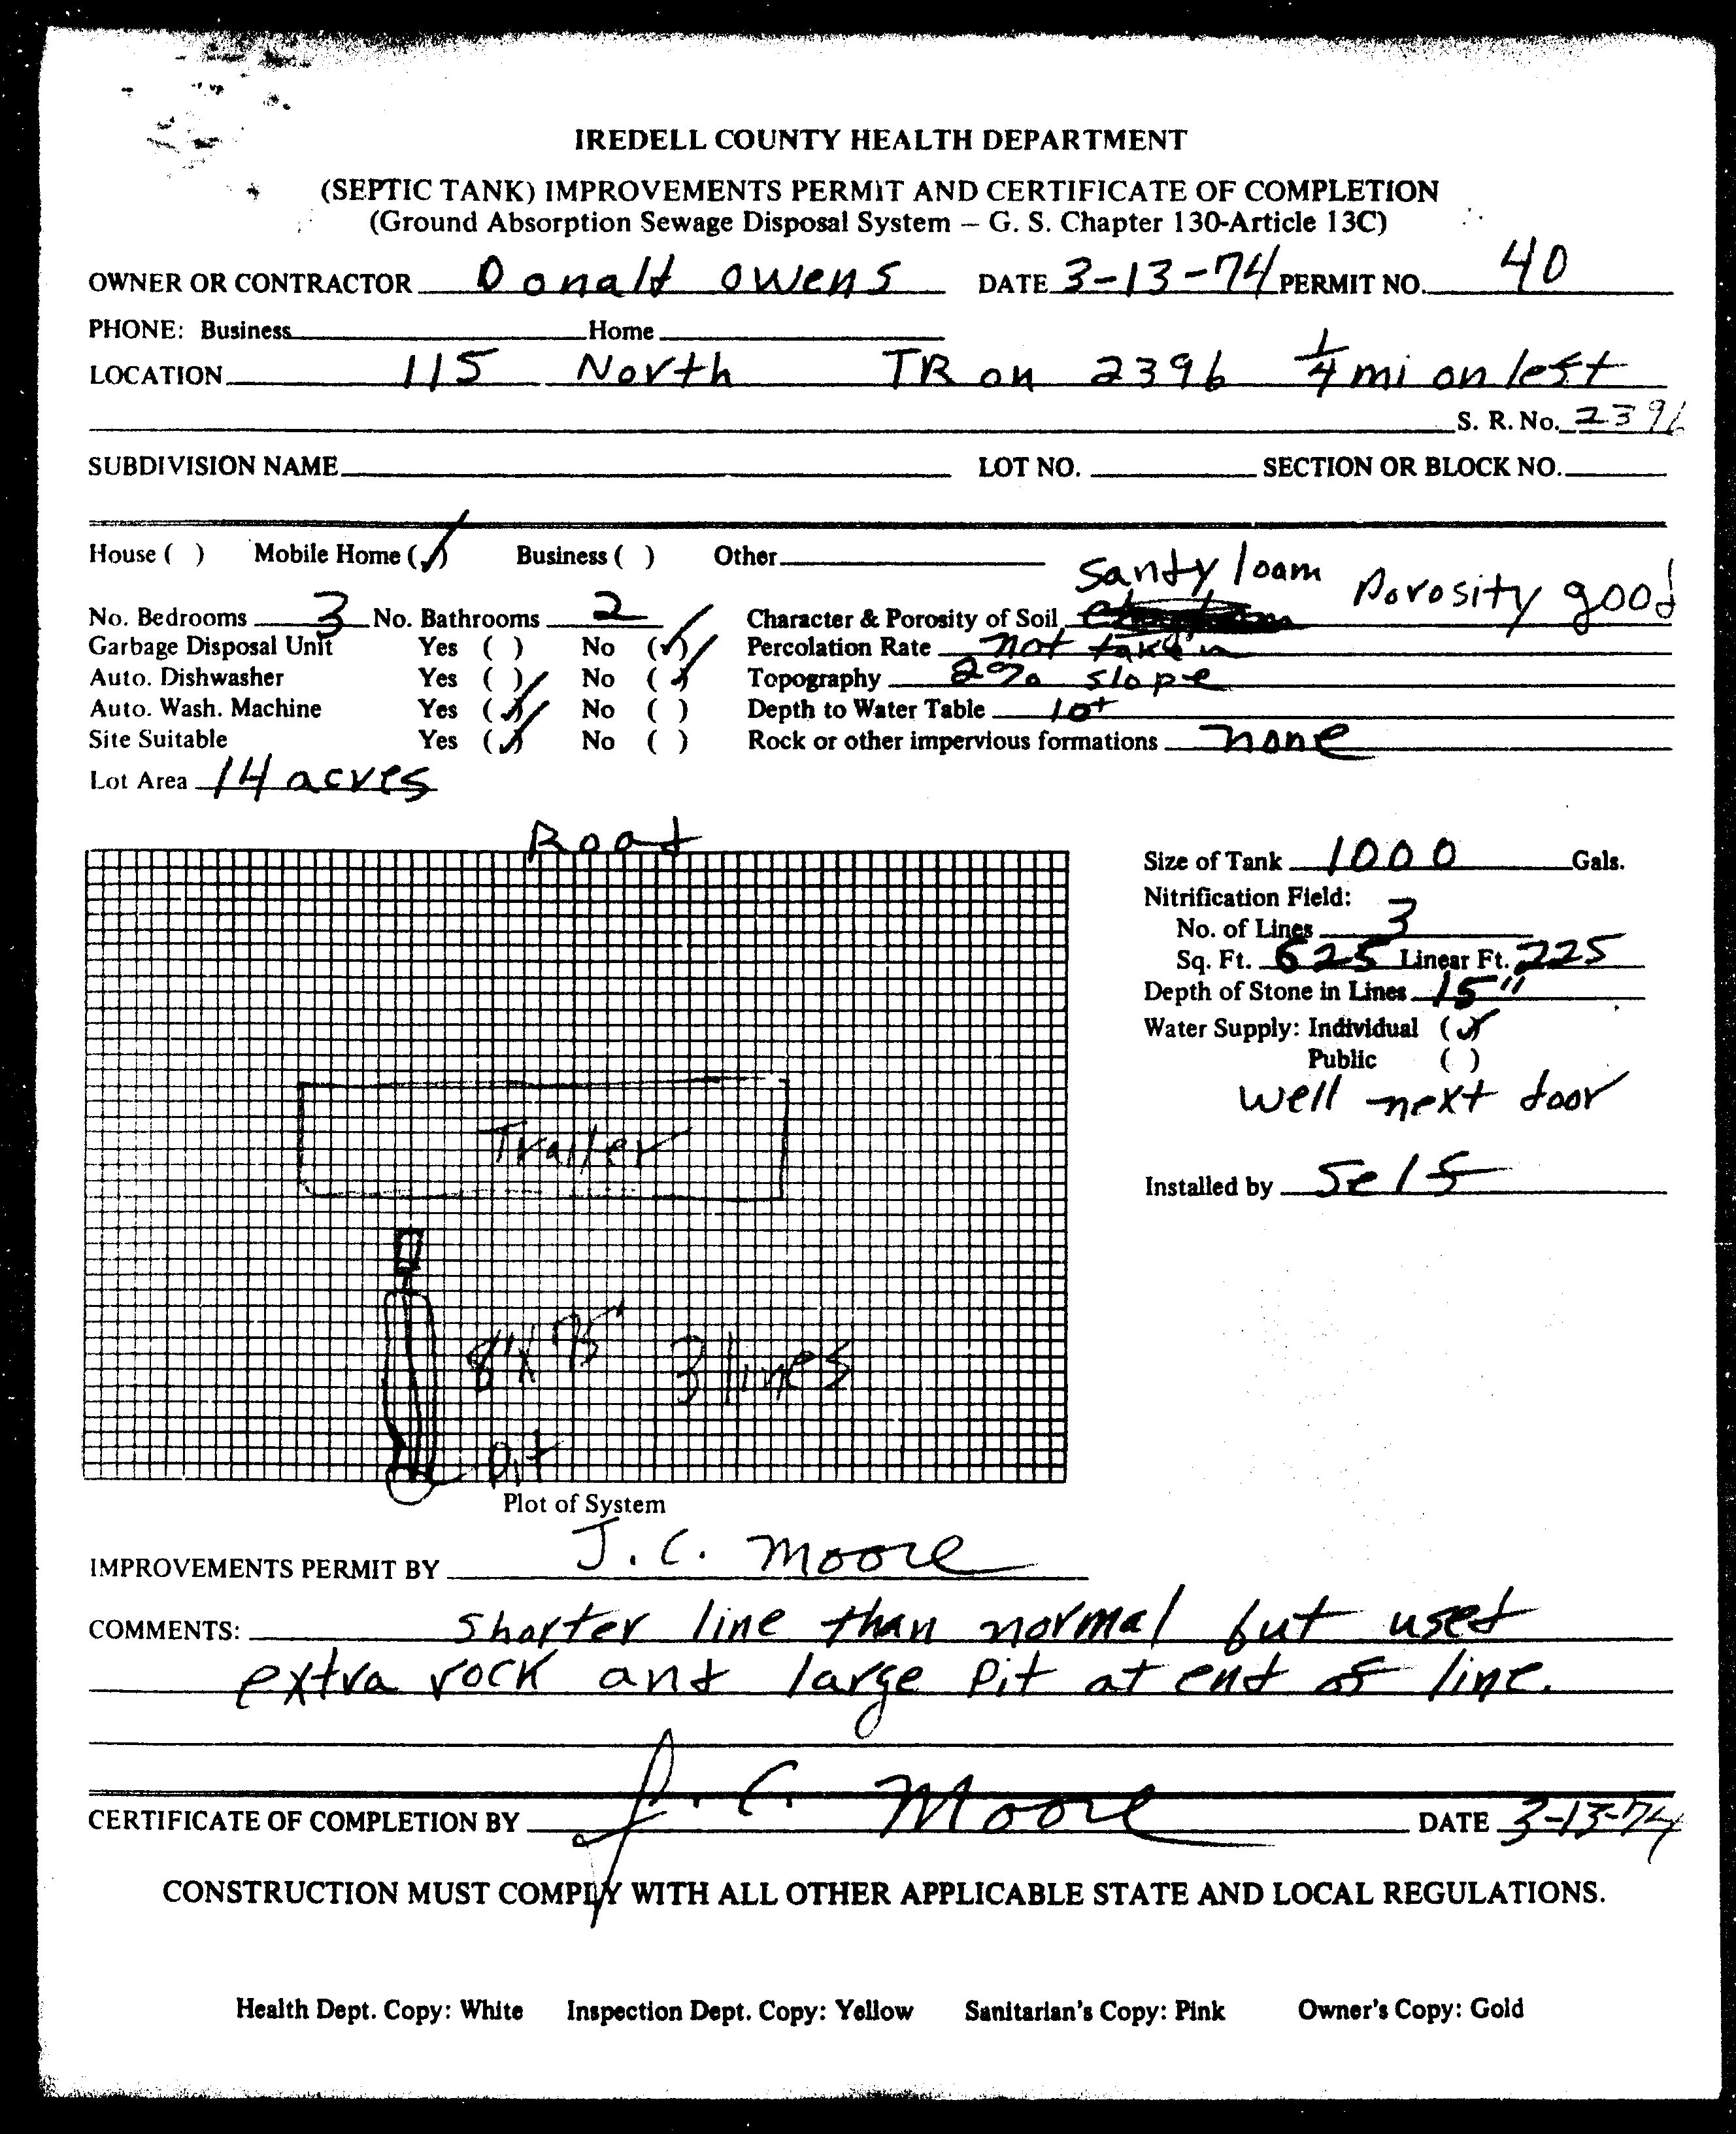 IREDELL COUNTY HEALTH DEPARTMENT
(SEPTIC TANK) IMPROVEMENTS PERMIT AND CERTIFICATE OF COMPLETION
(Ground Absorption Sewage Disposal System – G. S. Chapter 130-Article 13C)
OWNER OR CONTRACTOR Donald Owens DATE 3-13-74 PERMIT NO. 40
PHONE: Business Home
LOCATION 115 North TR on 2396 1/4 mi on left
S. R. No. 2396
SUBDIVISION NAME LOT NO. SECTION OR BLOCK NO.
House ( ) Mobile Home (✓) Business ( ) Other
No. Bedrooms 3 No. Bathrooms 2 Character & Porosity of Soil Sandy loam Porosity good
Garbage Disposal Unit Yes ( ) No (✓) Percolation Rate not taken
Auto. Dishwasher Yes ( ) No (✓) Topography 2% slope
Auto. Wash. Machine Yes (✓) No ( ) Depth to Water Table 10+
Site Suitable Yes (✓) No ( ) Rock or other impervious formations none
Lot Area 14 acres
Road
Trailer
8' x 75' 3 lines
Pit
Plot of System
Size of Tank 1000 Gals.
Nitrification Field:
No. of Lines 3
Sq. Ft. 625 Linear Ft. 225
Depth of Stone in Lines 15"
Water Supply: Individual (✓)
Public ( )
well next door
Installed by Self
IMPROVEMENTS PERMIT BY J. C. Moore
COMMENTS: shorter line than normal but used
extra rock and large pit at end of line.
CERTIFICATE OF COMPLETION BY J. C. Moore DATE 3-13-74
CONSTRUCTION MUST COMPLY WITH ALL OTHER APPLICABLE STATE AND LOCAL REGULATIONS.
Health Dept. Copy: White Inspection Dept. Copy: Yellow Sanitarian's Copy: Pink Owner's Copy: Gold